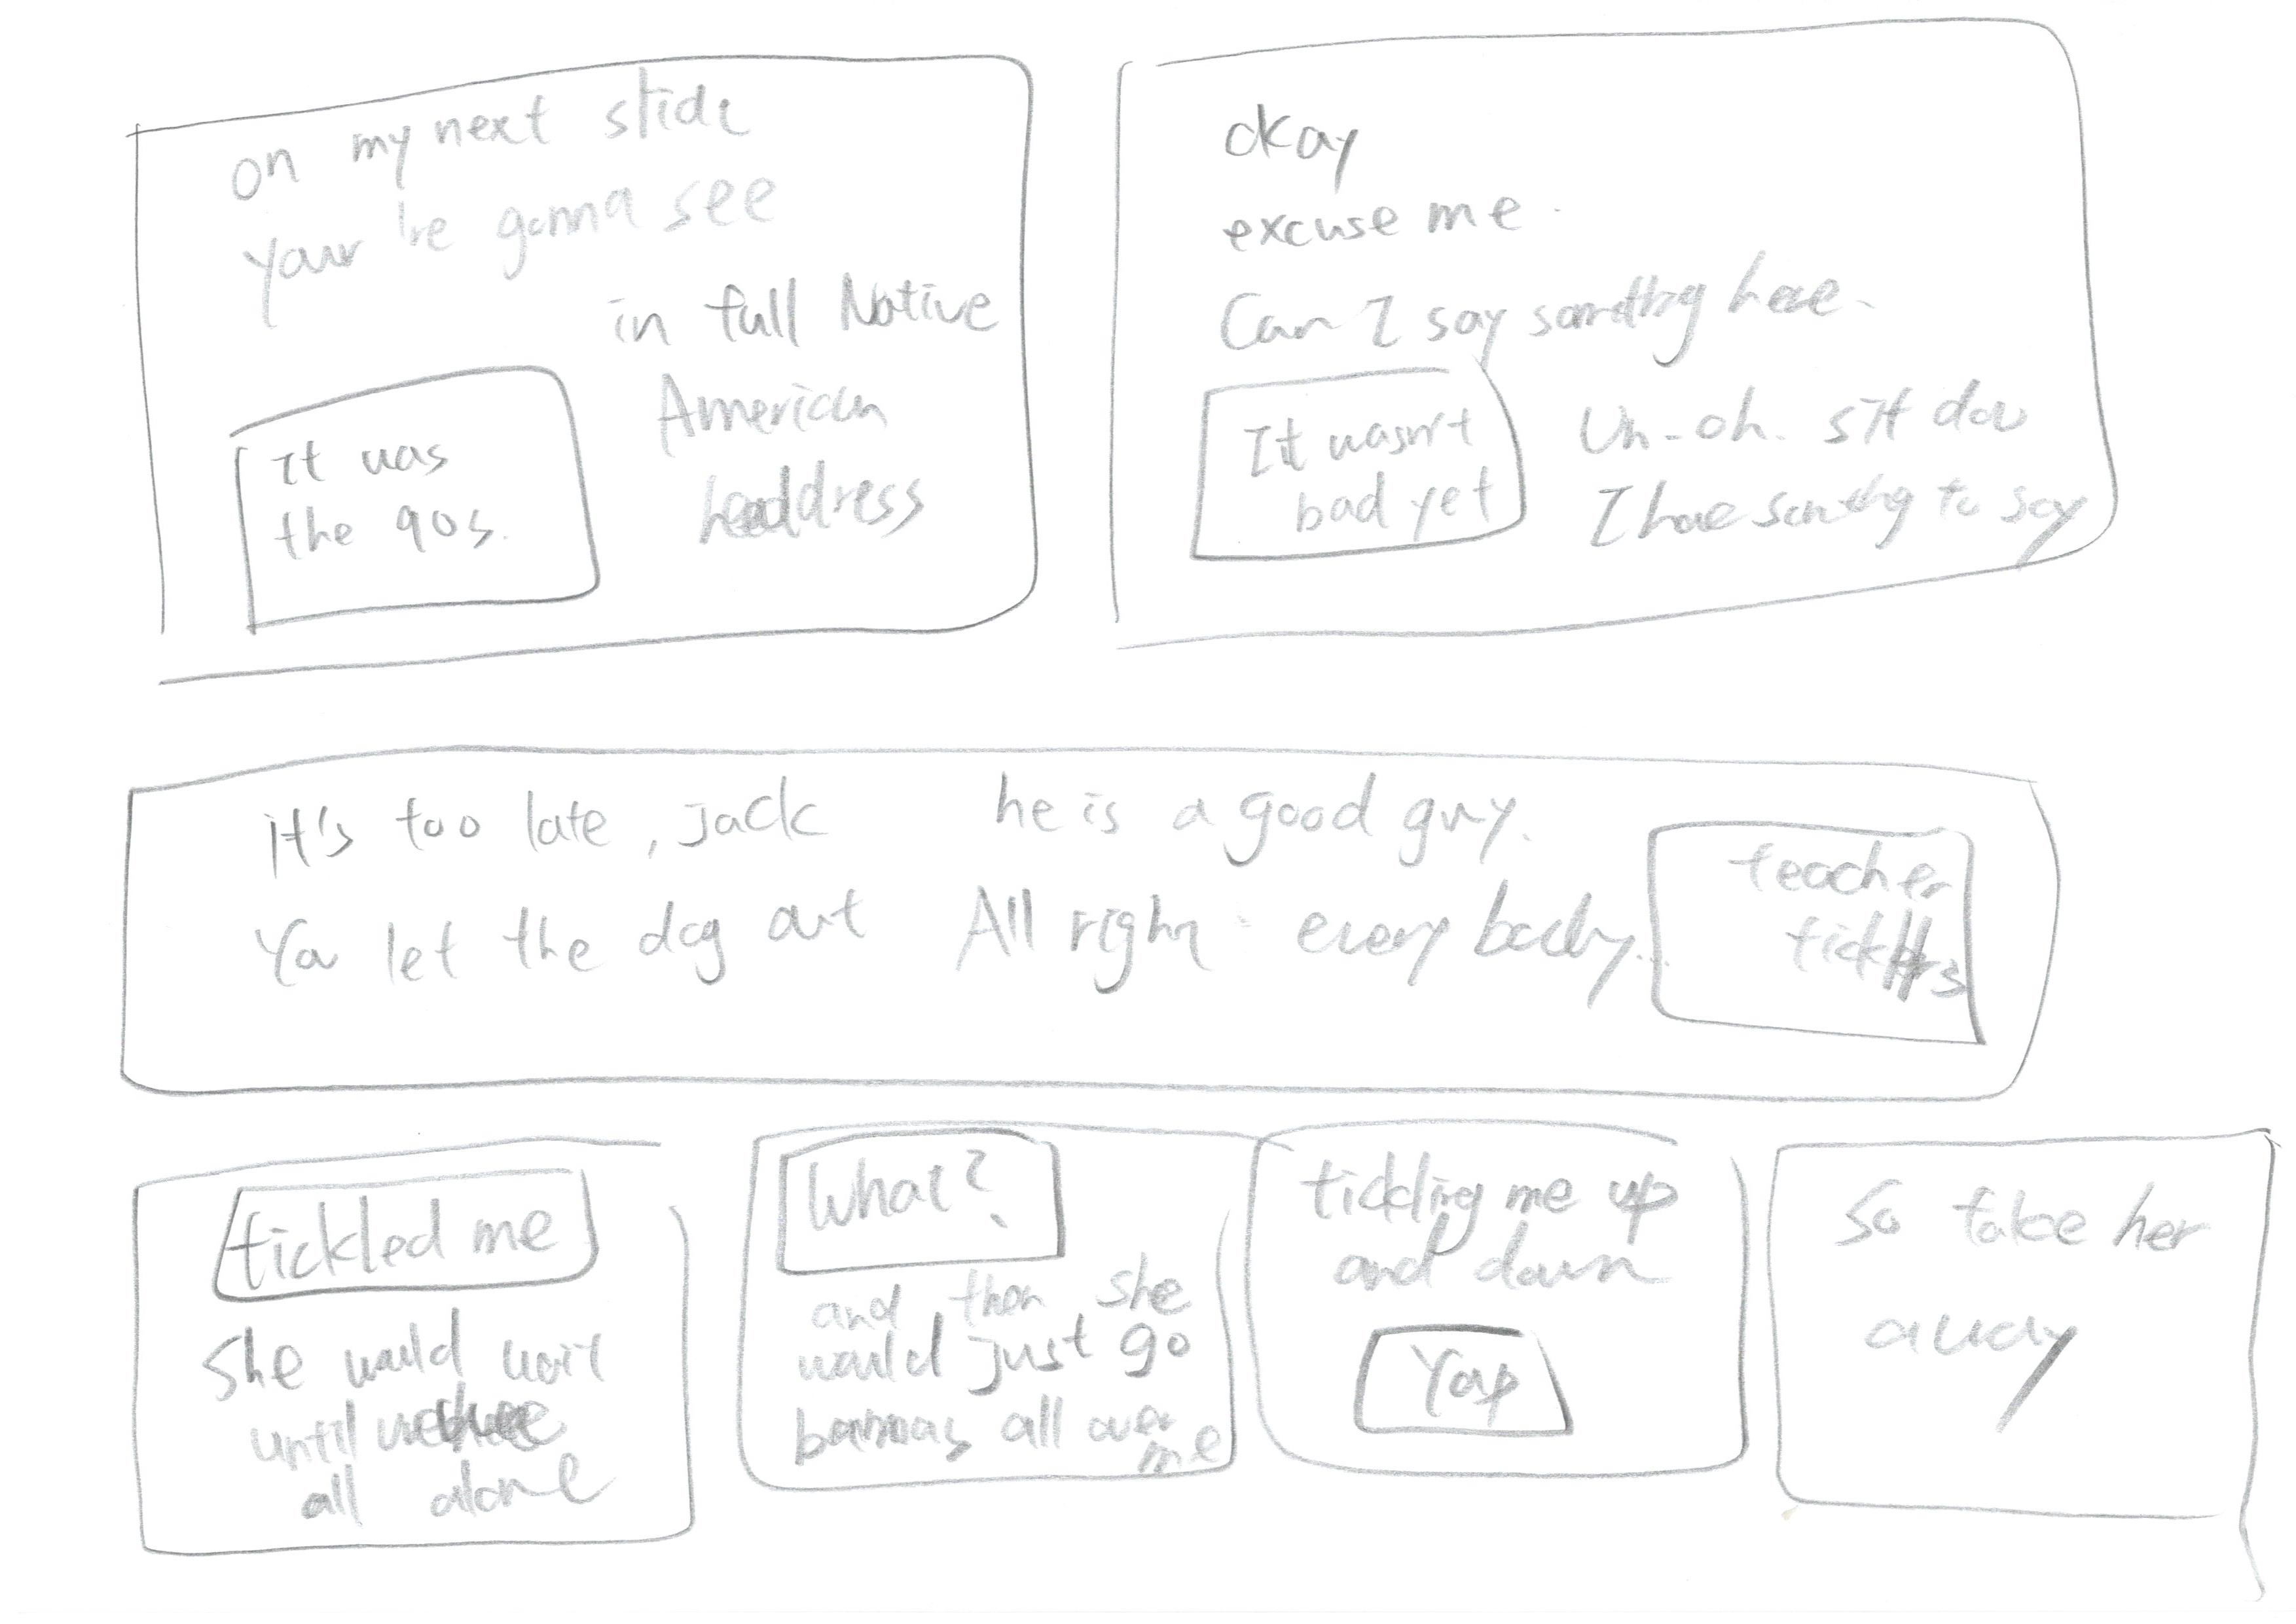 on my next slide
your're gonna see
in full Native
American
headdress
It was
the 90s.
okay
excuse me.
Can I say something here.
It wasn't
bad yet
Uh-oh. sit dow
I have somethg to say
it's too late, Jack
You let the dog out
he is a good guy.
All right everybody...
teacher
tickles
tickled me
She would wait
until we
all alone
What?
and then she
would just go
bannas all over
me
tickling me up
and down
Yap
So take her
away